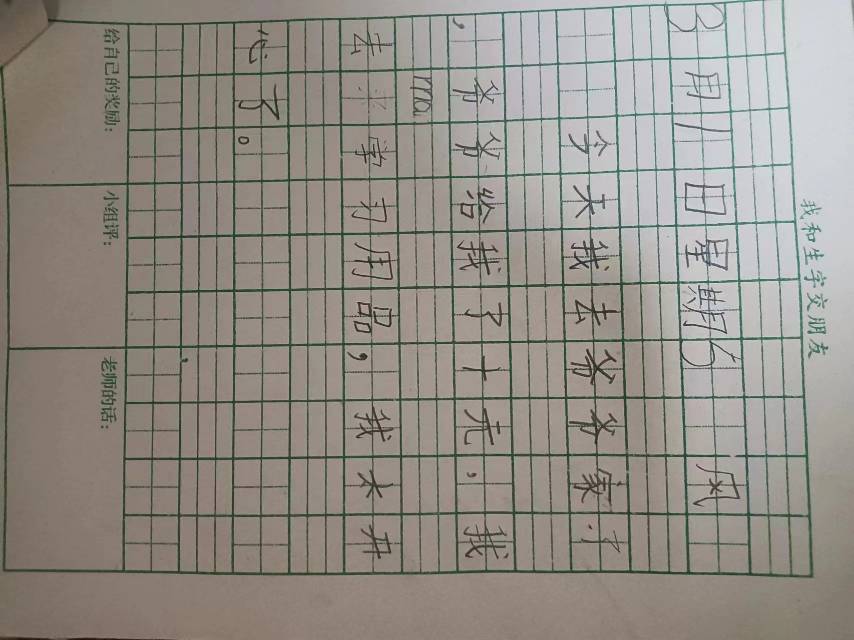 我和生字交朋友
3月1日星期5 风
今天我去爷爷家了
，爷爷给我了十元，我
mai
去 学习用品，我太开
心了。
给自己的奖励： 小组评： 老师的话：